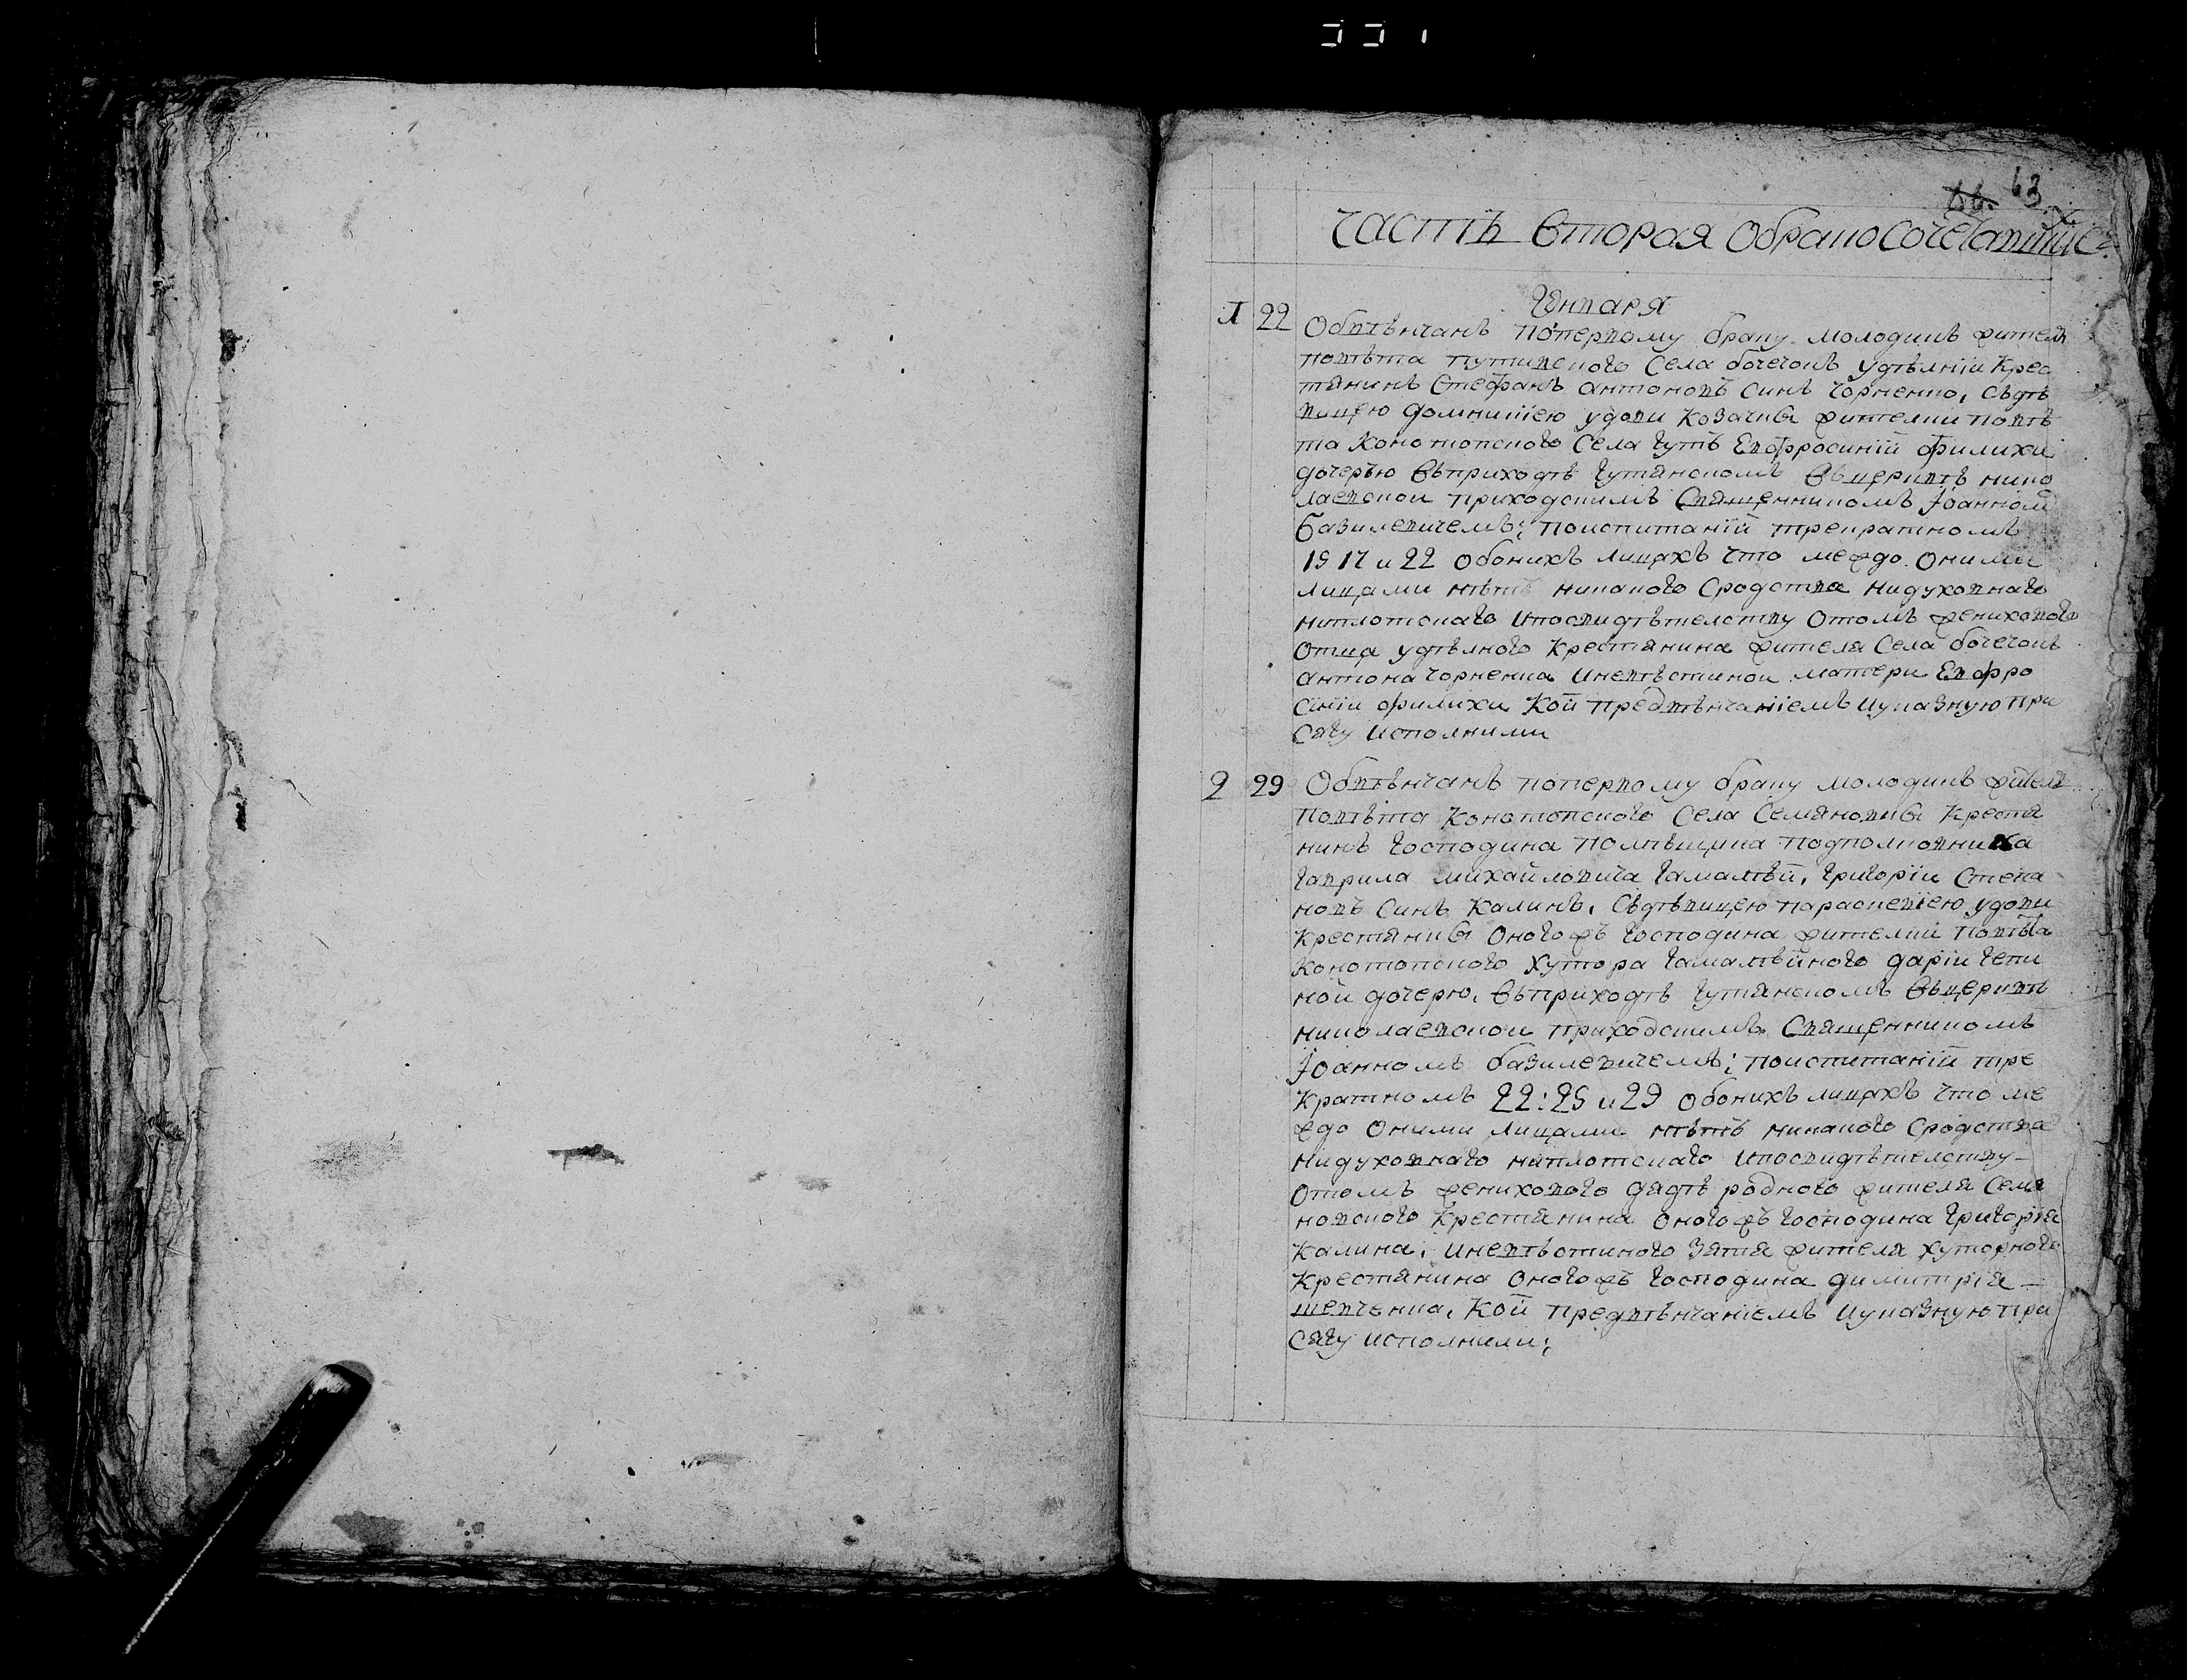 63
часть вторая о бракосочетавшихся
Генваря
1 22 Обвѣнчанъ поперъвому браку молодикъ жителъ
повѣта путивского села бочечокъ удѣлній крес
тянинъ стефанъ антоновъ синъ чорненко, съдѣ
вицею домникіею удови козачки жителки повѣ
та конотопского села гутъ Евфросиній филихи
дочерью въприходѣ гутянскомъ въцерквѣ нико
лаевской приходскимъ Священникомъ Іоанном
базилевичемъ; поиспитаній трекратномъ
15 17 и 22 обоихъ лицахъ что межdo оними
лицами нѣтъ никакого сродства нидуховнаго
ниплотскаго ипосвидѣтелству отомъ женихового
отца удѣлного крестянина жителя села бочечокъ
антона чорненка иневѣстиной матери Евфро
синіи филихи кой предвѣнчаніемъ иуказную при
сягу исполнили
2 29 Обвѣнчанъ поперъвому браку молодикъ жителъ
повѣта конотопского села семяновки крестя
нинъ господина помѣщика подполковника
гаврила михайловича гамалѣй, григорій степа
новъ синъ калинъ, съдѣвицею параскевіею удови
крестянки оногожъ господина жителкій повѣта
конотопского хутора гамалѣйного даріи гепи
ной дочерю, въприходѣ гутянскомъ въцерквѣ
николаевской приходскимъ Священникомъ
Іоанномъ базилевичемъ; поиспитаній тре
кратномъ 22: 25 и 29 обонихъ лицахъ что ме
жdo оними лицами нѣтъ никакого сродства
нидуховнаго ниплотскаго ипосвидѣтелству
отомъ женихового дядѣ родного жителя семя
новского крестянина оногожъ господина григорія
калина, иневѣстиного зятя жителя хуторного
крестянина оногожъ господина димитрія
шевченка, кой предвѣнчаніемъ иуказную при
сягу исполнили;